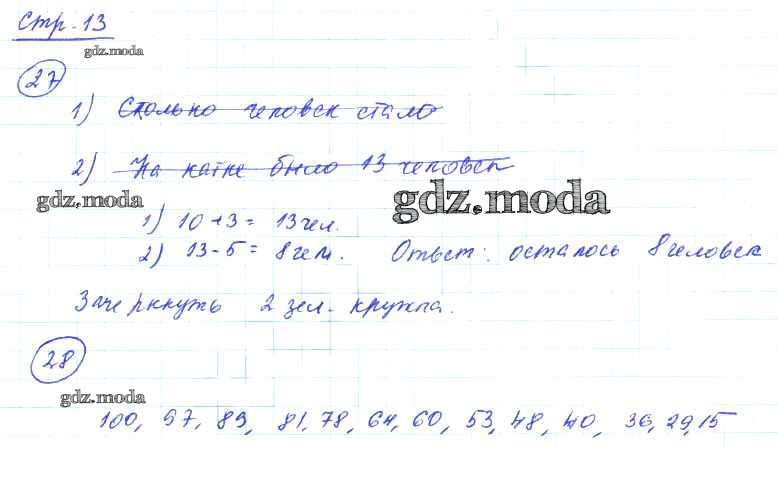 Стр. 13
gdz.moda
27
1) Столько человек стало
2) На катке было 13 человек
gdz.moda
gdz.moda
1) 10 + 3 = 13 чел.
2) 13 - 5 = 8 чел. Ответ: осталось 8 человек
Зачеркнуть 2 зел. кружка.
28
gdz.moda
100, 97, 89, 81, 78, 64, 60, 53, 48, 40, 36, 29, 15